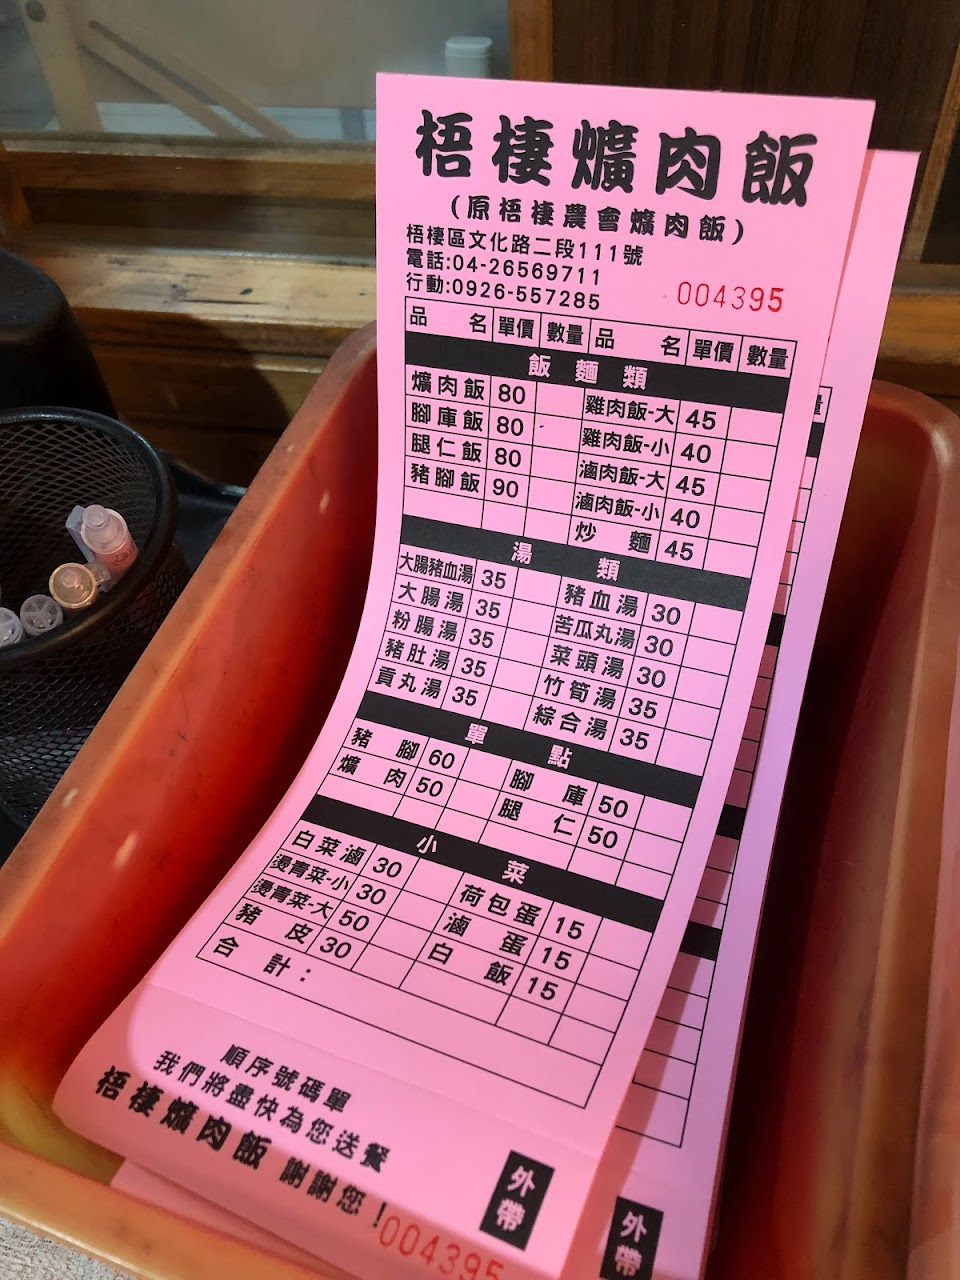 梧棲爌肉飯
(原梧棲農會爌肉飯)
梧棲區文化路二段111號
電話:04-26569711
行動:0926-557285
004395
品 名 單價 數量 品 名 單價 數量
飯麵類
爌肉飯 80 雞肉飯-大 45
腳庫飯 80 雞肉飯-小 40
腿仁飯 80 滷肉飯-大 45
豬腳飯 90 滷肉飯-小 40
炒麵 45
湯類
大腸豬血湯 35 豬血湯 30
大腸湯 35 苦瓜丸湯 30
粉腸湯 35 菜頭湯 30
豬肚湯 35 竹筍湯 35
貢丸湯 35 綜合湯 35
單點
豬腳 60 腳庫 50
爌肉 50 腿仁 50
小菜
白菜滷 30 荷包蛋 15
燙青菜-小 30 滷蛋 15
燙青菜-大 50 白飯 15
豬皮 30
合計:
順序號碼單
我們將盡快為您送餐
梧棲爌肉飯 謝謝您!
外帶
004395
量
外帶